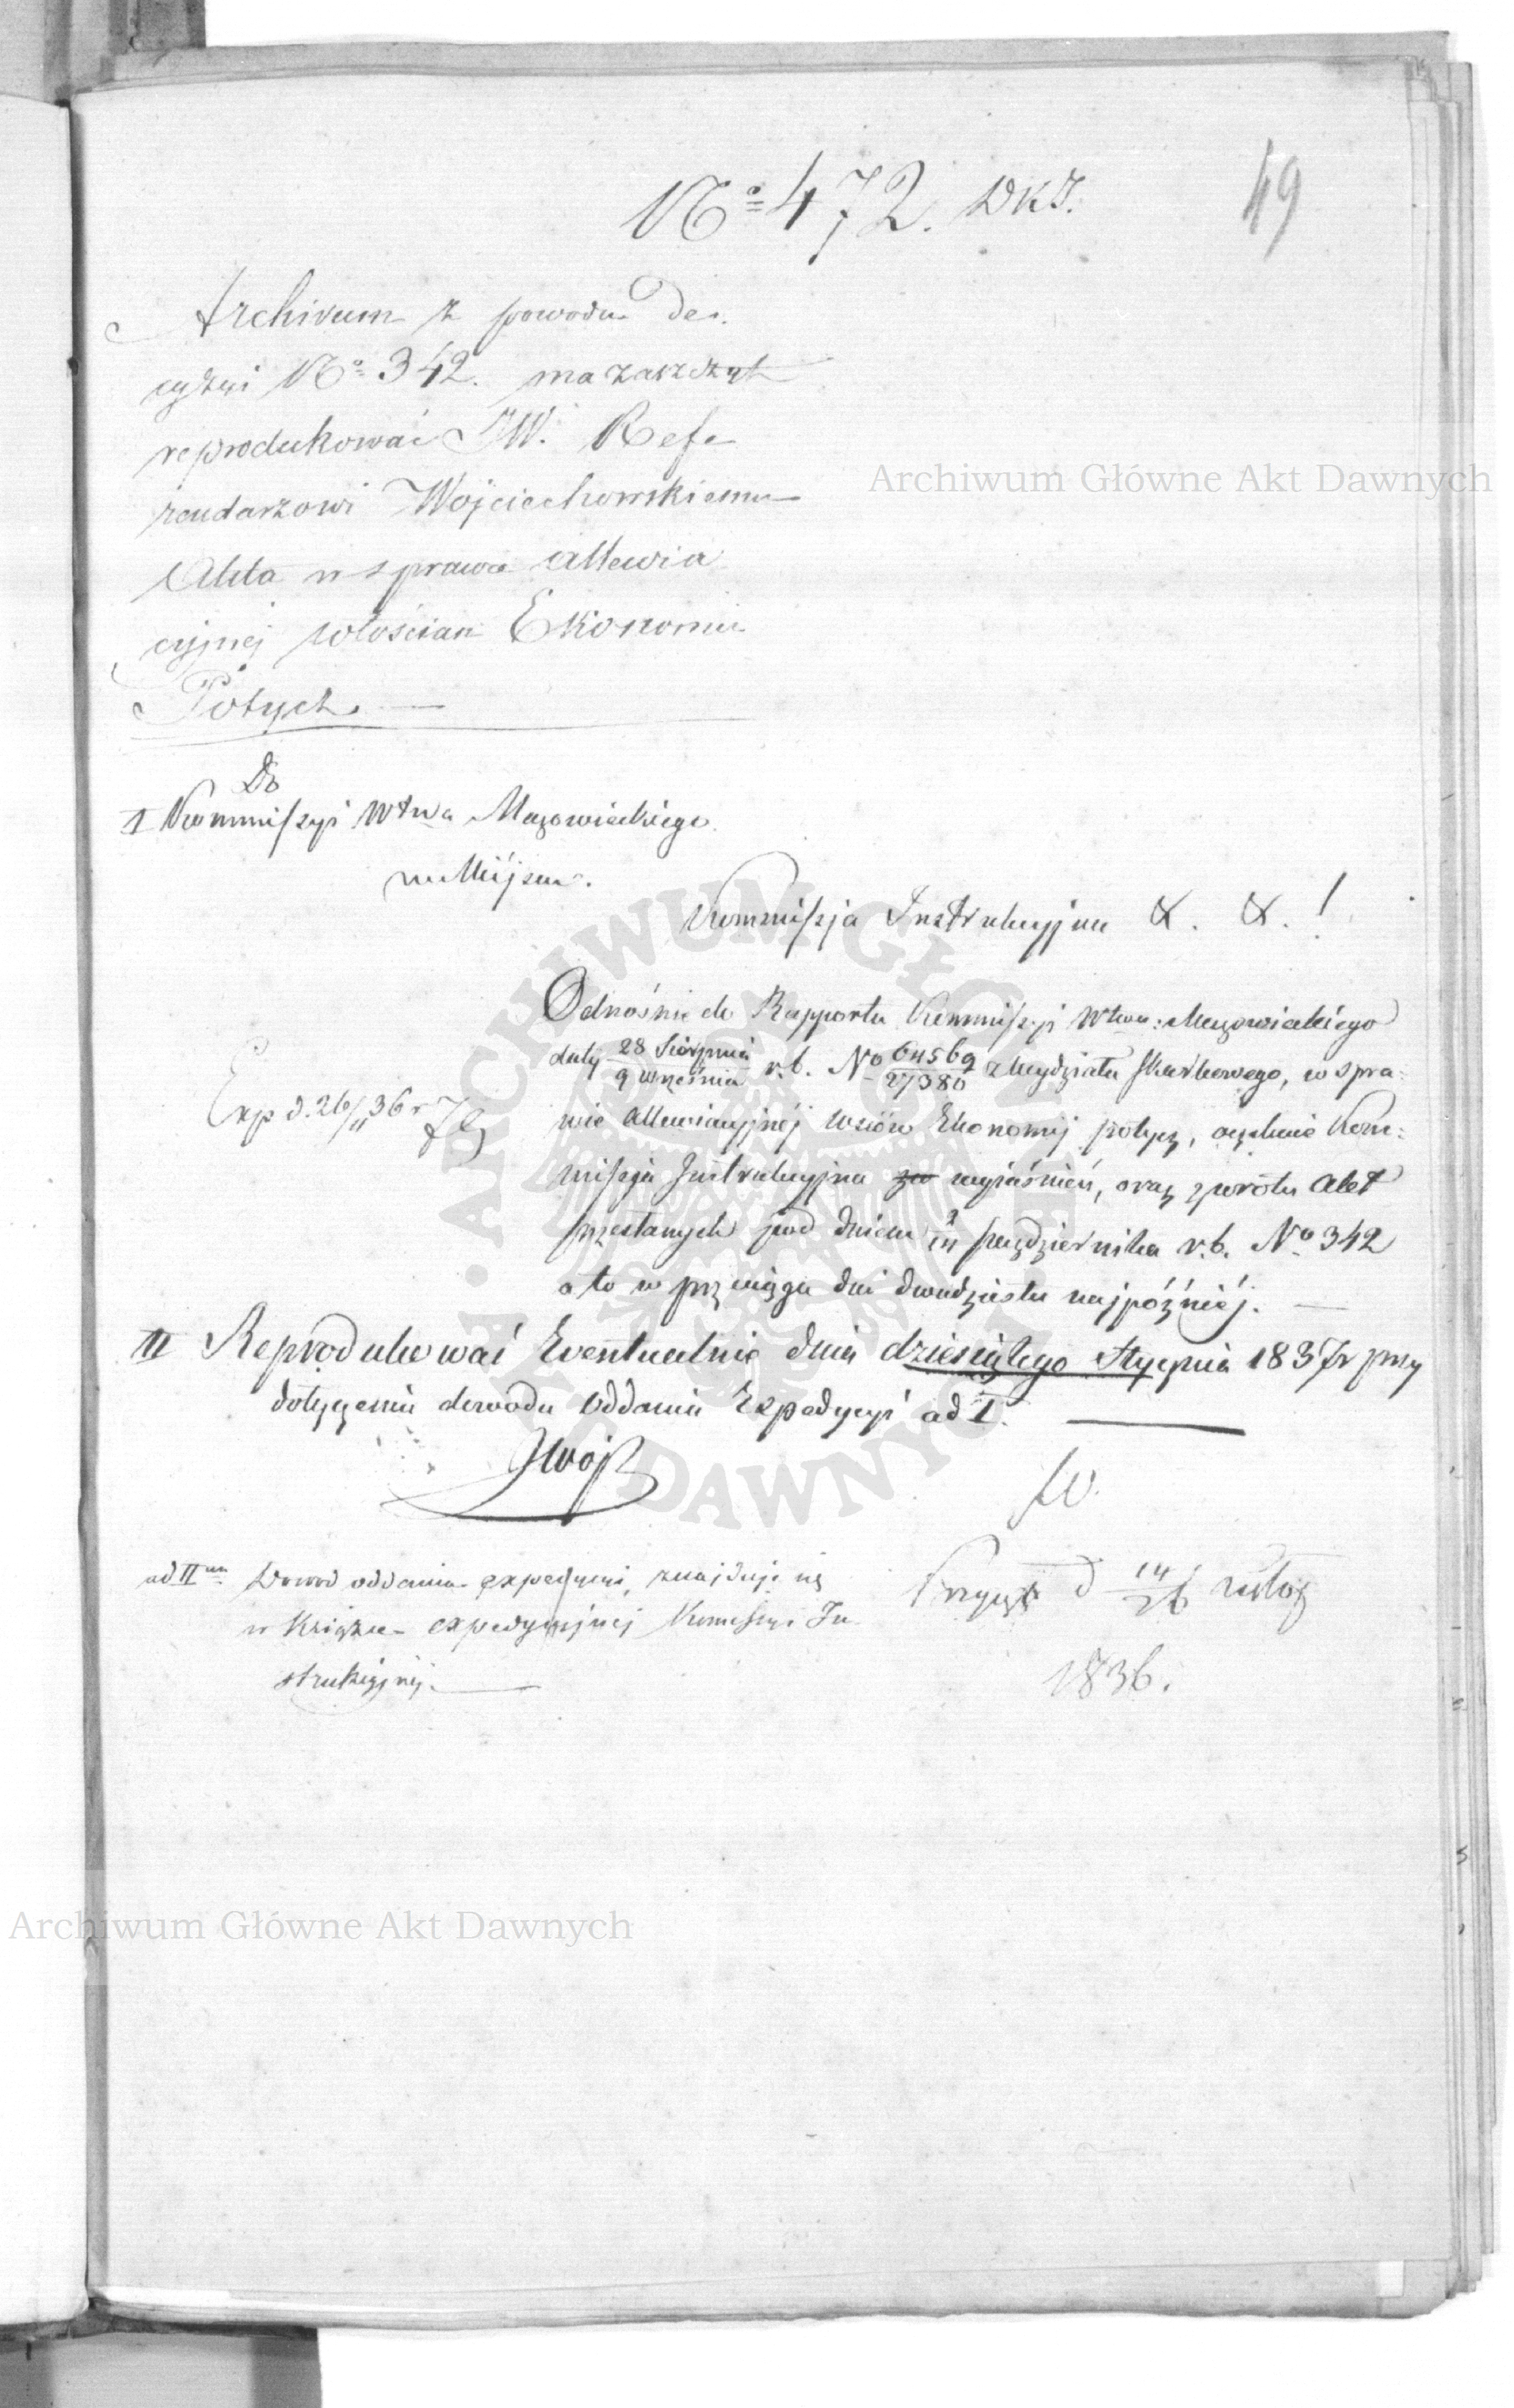 No 472. DKJ.
49
Archivum z powodu De.
cyzyi No 342. ma zaszczyt
reprodukować JW. Refe
rendarzowi Wojciechowskiemu
Akta w sprawie allewia
cyjnej włościan Ekonomii
Potycz. —
Do
I Kommissyi Wtwa Mazowieckiego
w Miejscu.
Kommissja Instrukcyjna &. &. !
Odnośnie do Rapportu Kommissyi Wtwa: Mazowieckiego
daty 28 Sierpnia / 9 Września r.b. No 64569 / 27380 z Wydziału Skarbowego, w spra:
wie allewiacyjnéj wsiów Ekonomij potycz, oczekuie Kom:
missja Instrukcyjna za wyiaśnień, oraz zwrotu Akt
przesłanych pod dniem października r.b. No 342
a to w przeciągu dni dwudziestu najpóźniéj. —
Exp d. 26/11 36 r
II Reprodukować Eventualnie dnia dziesiątego Stycznia 1837r przy
dołączeniu dowodu oddania Expedycyi ad I. —
JWojc
ad II um Dowod oddania expedycyi, znajduje się
w Książce expedycyjnej Komissyi In
strukcyjnej. —
d 14/26 Listop
1836.
Archiwum Główne Akt Dawnych
Archiwum Główne Akt Dawnych
ARCHIWUM GŁÓWNE AKT DAWNYCH